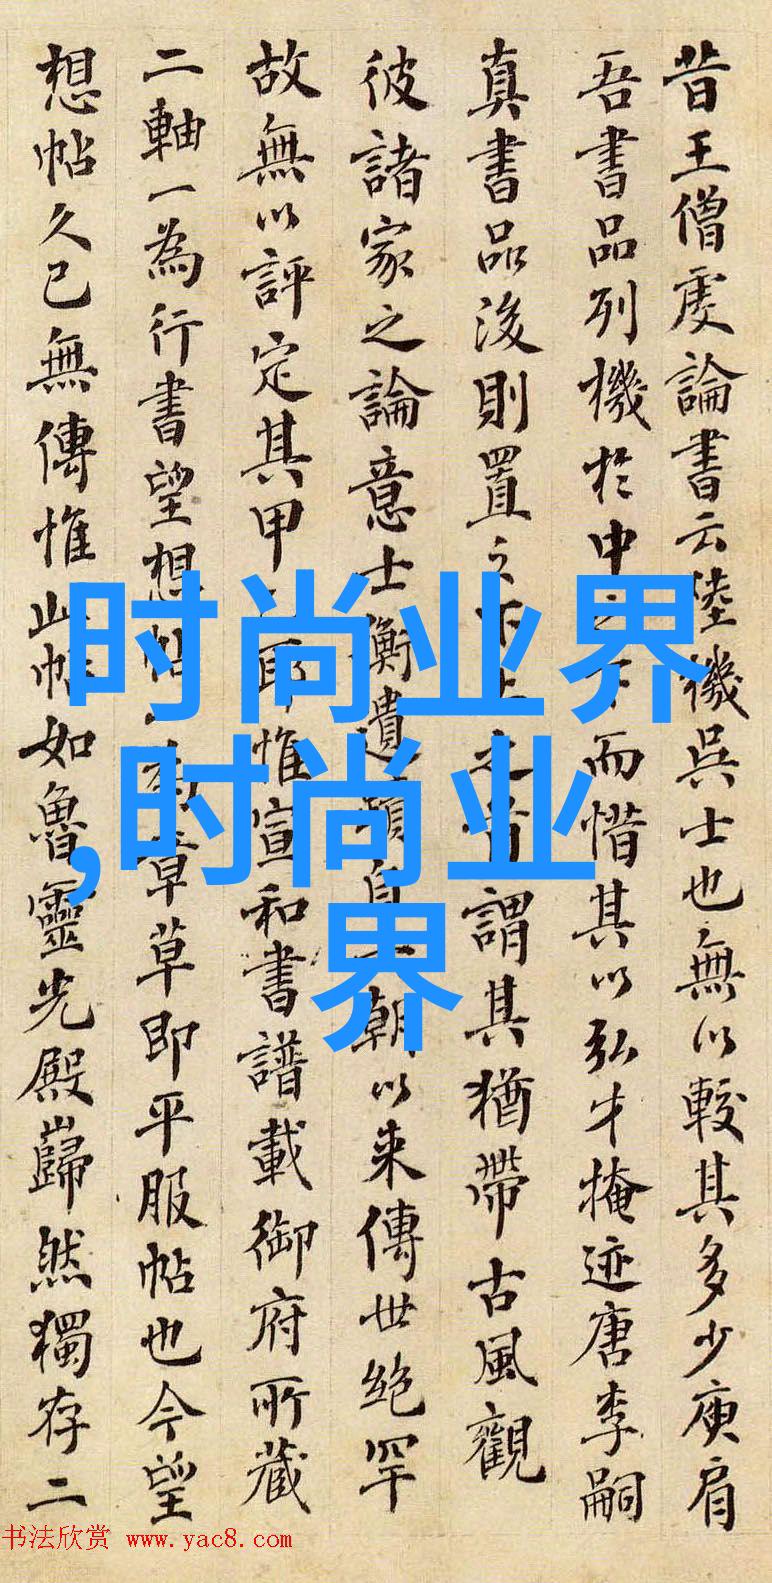 昔王僧虔論書云陸機吳士也無以較其多少庾肩
吾書品列機於中之下而惜其以弘才掩迹唐李嗣
真書品後則置之下上之首謂其猶帶古風觀
彼諸家之論意士衡遺自朝以来傳世絶罕
故無以評定其甲耶惟宣和書譜載御府所藏
二軸一為行書望想帖章草即平服帖也今望
想帖久已無傳惟此帖如魯靈光殿巋然獨存二
时尚业界
,时尚业
界
书法欣赏 www.yac8.com